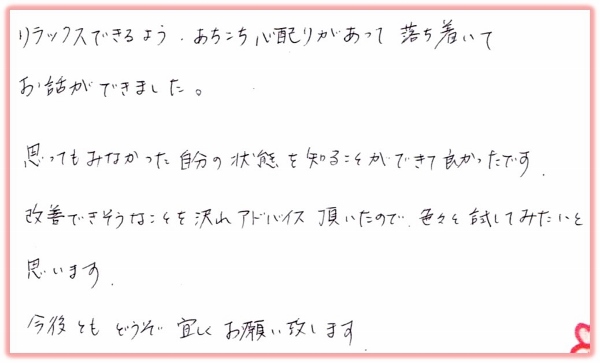 リラックスできるよう、あちこち心配りがあって落ち着いて
お話ができました。
思ってもみなかった自分の状態を知ることができて良かったです.
改善できそうなことを沢山アドバイス頂いたので、色々と試してみたいと
思います.
今後ともどうぞ宜しくお願い致します.